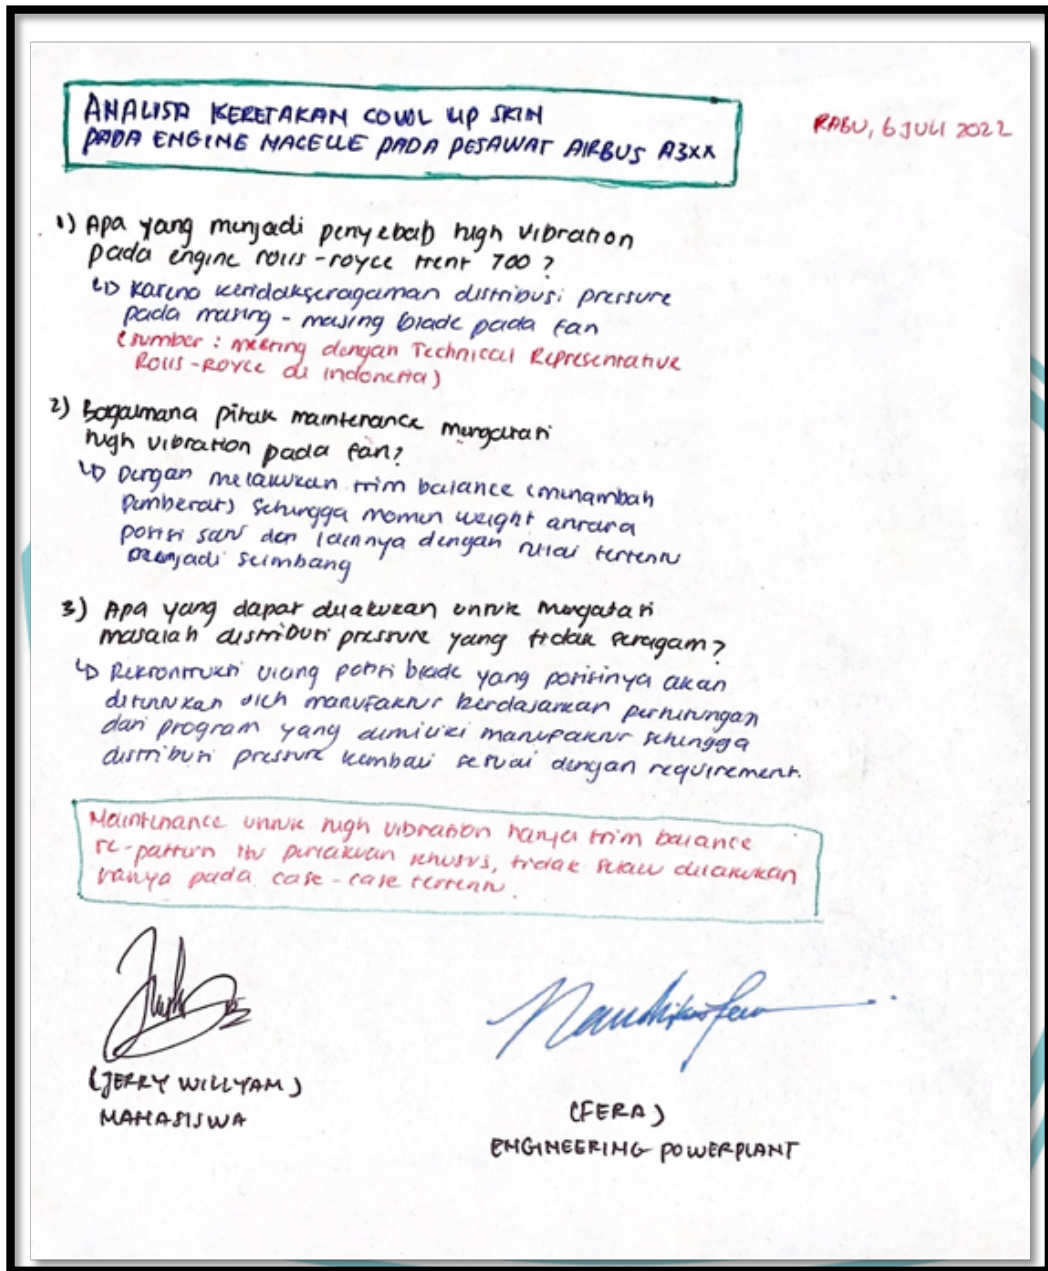 ANALISA KERETAKAN COWL LIP SKIN
PADA ENGINE NACELLE PADA PESAWAT AIRBUS A3XX
RABU, 6 JULI 2022
1) Apa yang menjadi penyebab high vibration
pada engine rolls-royce trent 700 ?
↳ Karena ketidakseragaman distribusi pressure
pada masing - masing blade pada fan
(sumber : meeting dengan Technical Representative
Rolls-Royce di Indonesia)
2) Bagaimana pihak maintenance mengatasi
high vibration pada fan?
↳ Dengan melakukan trim balance (menambah
pemberat) sehingga momen weight antara
posisi satu dan lainnya dengan nilai tertentu
menjadi seimbang
3) Apa yang dapat dilakukan untuk mengatasi
masalah distribusi pressure yang tidak seragam?
↳ Rekonstruksi ulang posisi blade yang posisinya akan
ditentukan oleh manufaktur berdasarkan perhitungan
dari program yang dimiliki manufaktur sehingga
distribusi pressure kembali sesuai dengan requirement.
Maintenance untuk high vibration hanya trim balance
re-pattern itu perlakuan khusus, tidak selalu dilakukan
hanya pada case-case tertentu
(JERRY WILLYAM)
MAHASISWA
(FERA)
ENGINEERING POWERPLANT